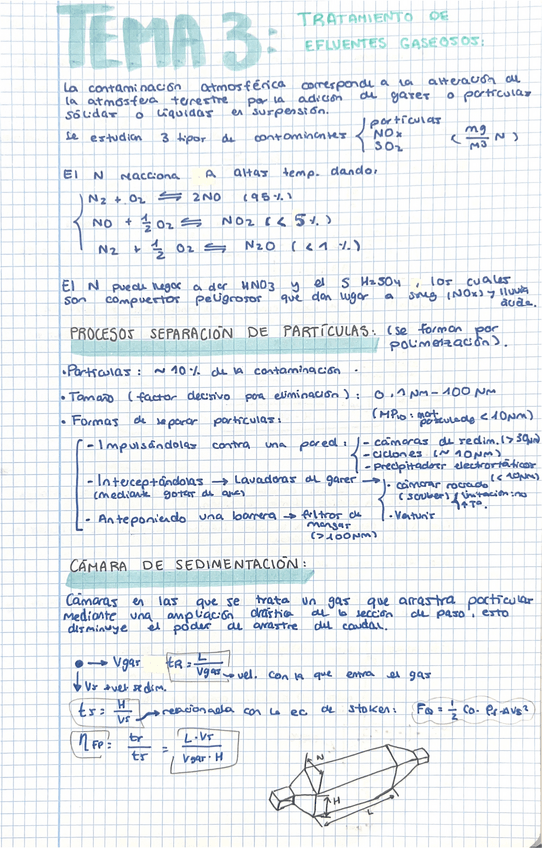 TEMA 3:
TRATAMIENTO DE
EFLUENTES GASEOSOS:
La contaminación atmosférica corresponde a la alteración de
la atmósfera terrestre por la adición de gases o partículas
sólidas o líquidas en suspensión.
Se estudian 3 tipos de contaminantes { partículas
NOx
SO2
(mg/m3 N)
El N reacciona a altas temp. dando:
N2 + O2 ⇌ 2NO (95%)
NO + 1/2 O2 ⇌ NO2 (<5%)
N2 + 1/2 O2 ⇌ N2O (<1%)
El N puede llegar a dar HNO3 y el S H2SO4, los cuales
son compuestos peligrosos que dan lugar a smog (NOx) y lluvia
ácida.
PROCESOS SEPARACIÓN DE PARTÍCULAS: (se forman por
polimerización).
• Partículas: ~10% de la contaminación.
• Tamaño (factor decisivo para eliminación): 0,1 µm - 100 µm
(MP10: mat.
particulado <10µm)
• Formas de separar partículas:
- Impulsándolas contra una pared: - cámaras de sedim. (>30µm)
- ciclones (~10µm)
- precipitador electrostáticos
(<10µm)
- Interceptándolas → Lavadoras de gases → • cámaras rociado
(mediante gotas de agua)
(scrubber) limitación: no
↑Tª.
• Venturis
- Anteponiendo una barrera → filtros de
mangas
(>100µm)
CÁMARA DE SEDIMENTACIÓN:
Cámaras en las que se trata un gas que arrastra partículas
mediante una ampliación drástica de la sección de paso, esto
disminuye el poder de arrastre del caudal.
→ Vgas tR = L/Vgas → vel. con la que entra el gas
↓ Vs → vel sedim.
ts = H/Vs → relacionada con la ec. de stokes: FD = 1/2 CD · ρf · A Vs²
ηFP: tr/ts = L·Vs/Vgas·H
H
L